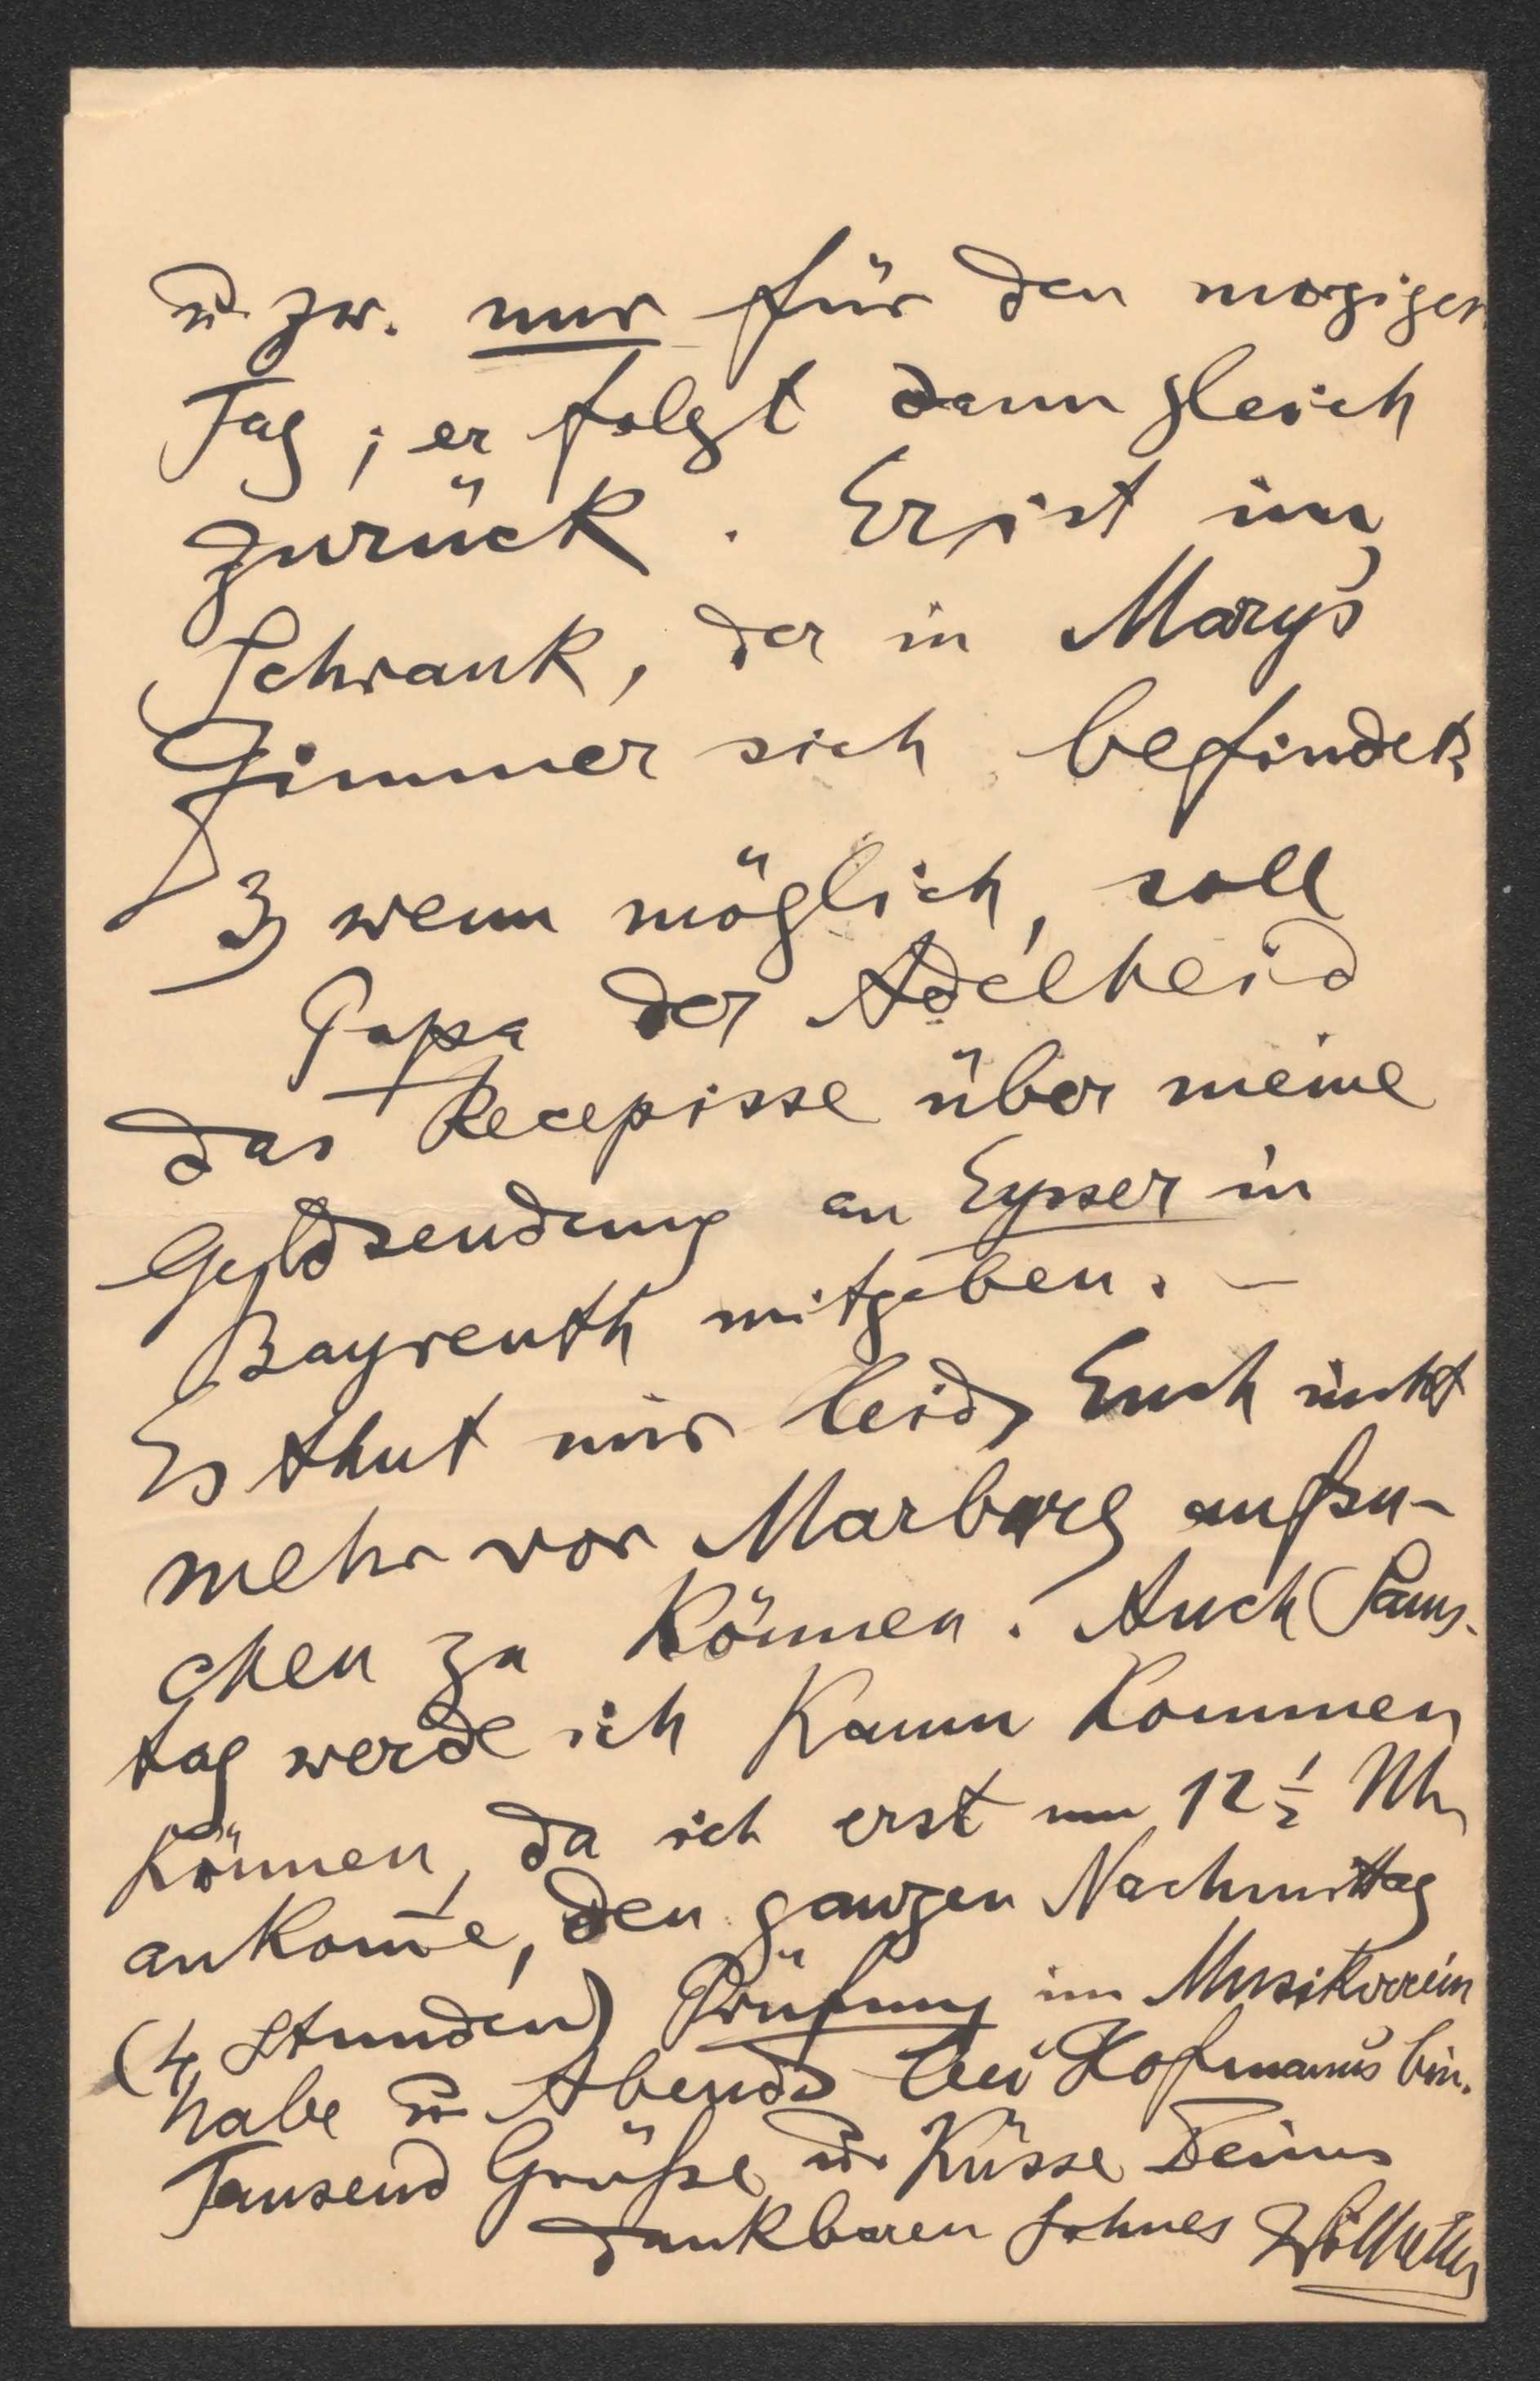 u. zw. nur für den morgigen
Tag; er folgt dann gleich
zurück. Er ist im
Schrank, der in Mary's
Zimmer sich befindet.
3) wenn möglich, soll
Papa der Adelheid
das Recepisse über meine
Geldsendung an Eysser in
Bayreuth mitgeben. –
Es thut mir leid, Euch nicht
mehr vor Marburg aufsu-
chen zu können. Auch Sams-
tag werde ich kaum kommen
können, da ich erst um 12 ½ Uhr
ankom̅e, den ganzen Nachmittag
(4 Stunden) Prüfung im Musikverein
habe u. Abends bei Hofmanns bin.
Tausend Grüße u. Küsse Deines
dankbaren Sohnes